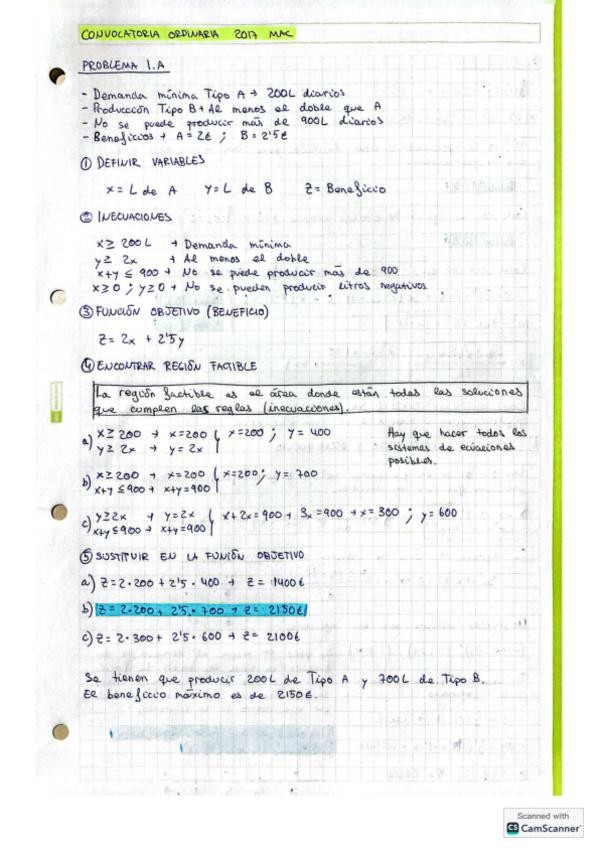 CONVOCATORIA ORDINARIA 2017 MAC
PROBLEMA 1.A
- Demanda mínima Tipo A → 200L diarios
- Producción Tipo B → Al menos el doble que A
- No se puede producir más de 900L diarios
- Beneficios → A = 2€ ; B = 2'5€
① DEFINIR VARIABLES
x = L de A   y = L de B   z = Beneficio
② INECUACIONES
x ≥ 200L → Demanda mínima
y ≥ 2x → Al menos el doble
x+y ≤ 900 → No se puede producir más de 900
x ≥ 0 ; y ≥ 0 → No se pueden producir litros negativos
③ FUNCIÓN OBJETIVO (BENEFICIO)
z = 2x + 2'5y
④ ENCONTRAR REGIÓN FACTIBLE
La región factible es el área donde están todas las soluciones
que cumplen las reglas (inecuaciones).
a) x ≥ 200 → x = 200 { x = 200 ; y = 400
y ≥ 2x → y = 2x
Hay que hacer todos los
sistemas de ecuaciones
posibles.
b) x ≥ 200 → x = 200 { x = 200 ; y = 700
x+y ≤ 900 → x+y = 900
c) y ≥ 2x → y = 2x { x + 2x = 900 → 3x = 900 → x = 300 ; y = 600
x+y ≤ 900 → x+y = 900
⑤ SUSTITUIR EN LA FUNIÓN OBJETIVO
a) z = 2·200 + 2'5·400 → z = 1400€
b) z = 2·200 + 2'5·700 → z = 2150€
c) z = 2·300 + 2'5·600 → z = 2100€
Se tienen que producir 200L de Tipo A y 700L de Tipo B.
El beneficio máximo es de 2150€.
Scanned with
CS CamScanner